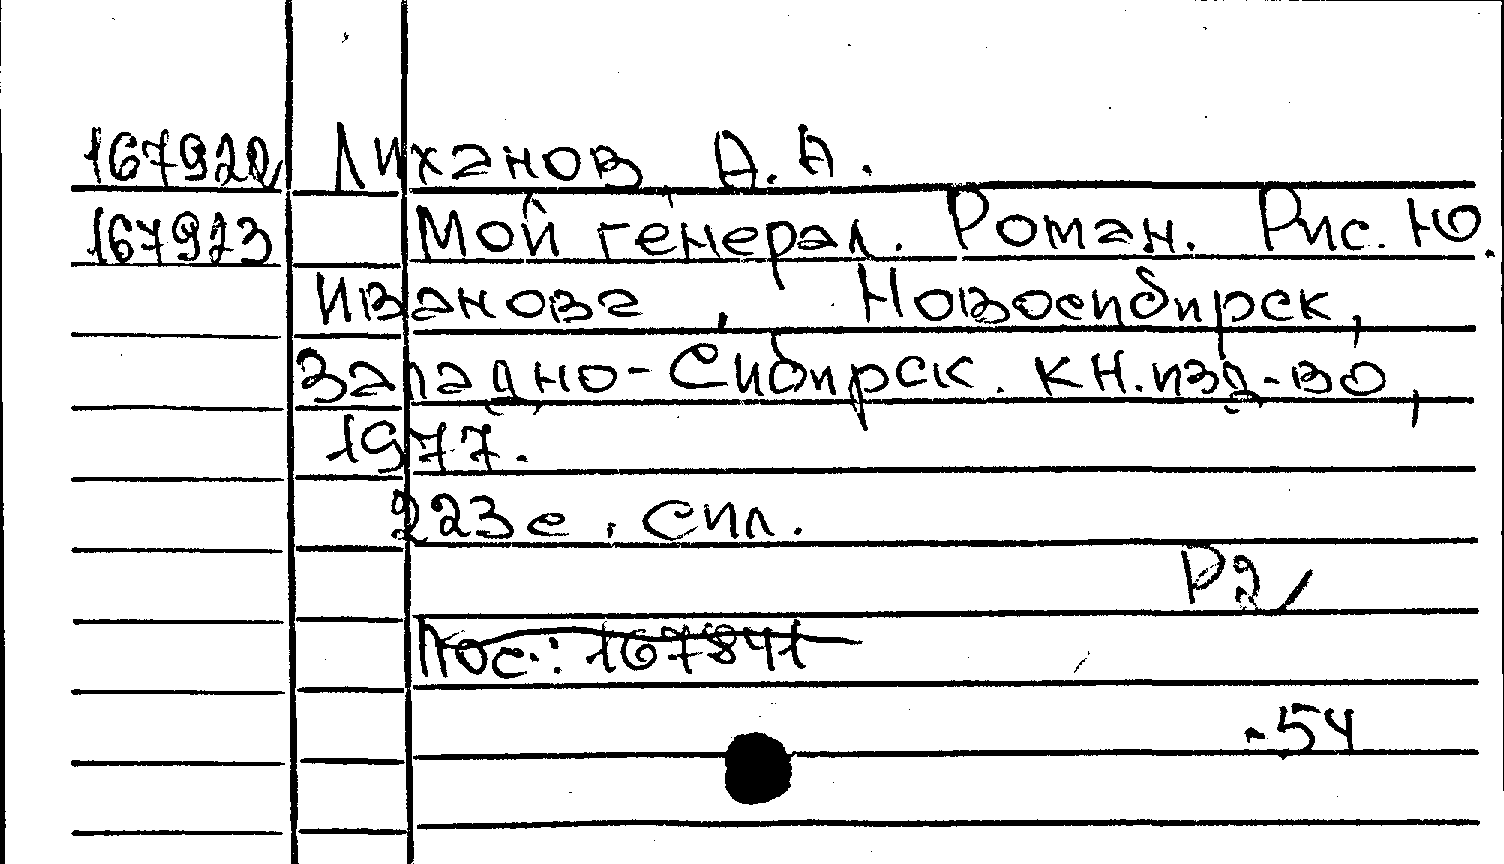 167922 Лиханов А.А.
167923 Мой генерал. Роман. Рис. Ю.
Иванова, Новосибирск,
Западно-Сибирск. кн.изд-во,
1977.
223с. сил.
Р2
Пос.: 167841
-54